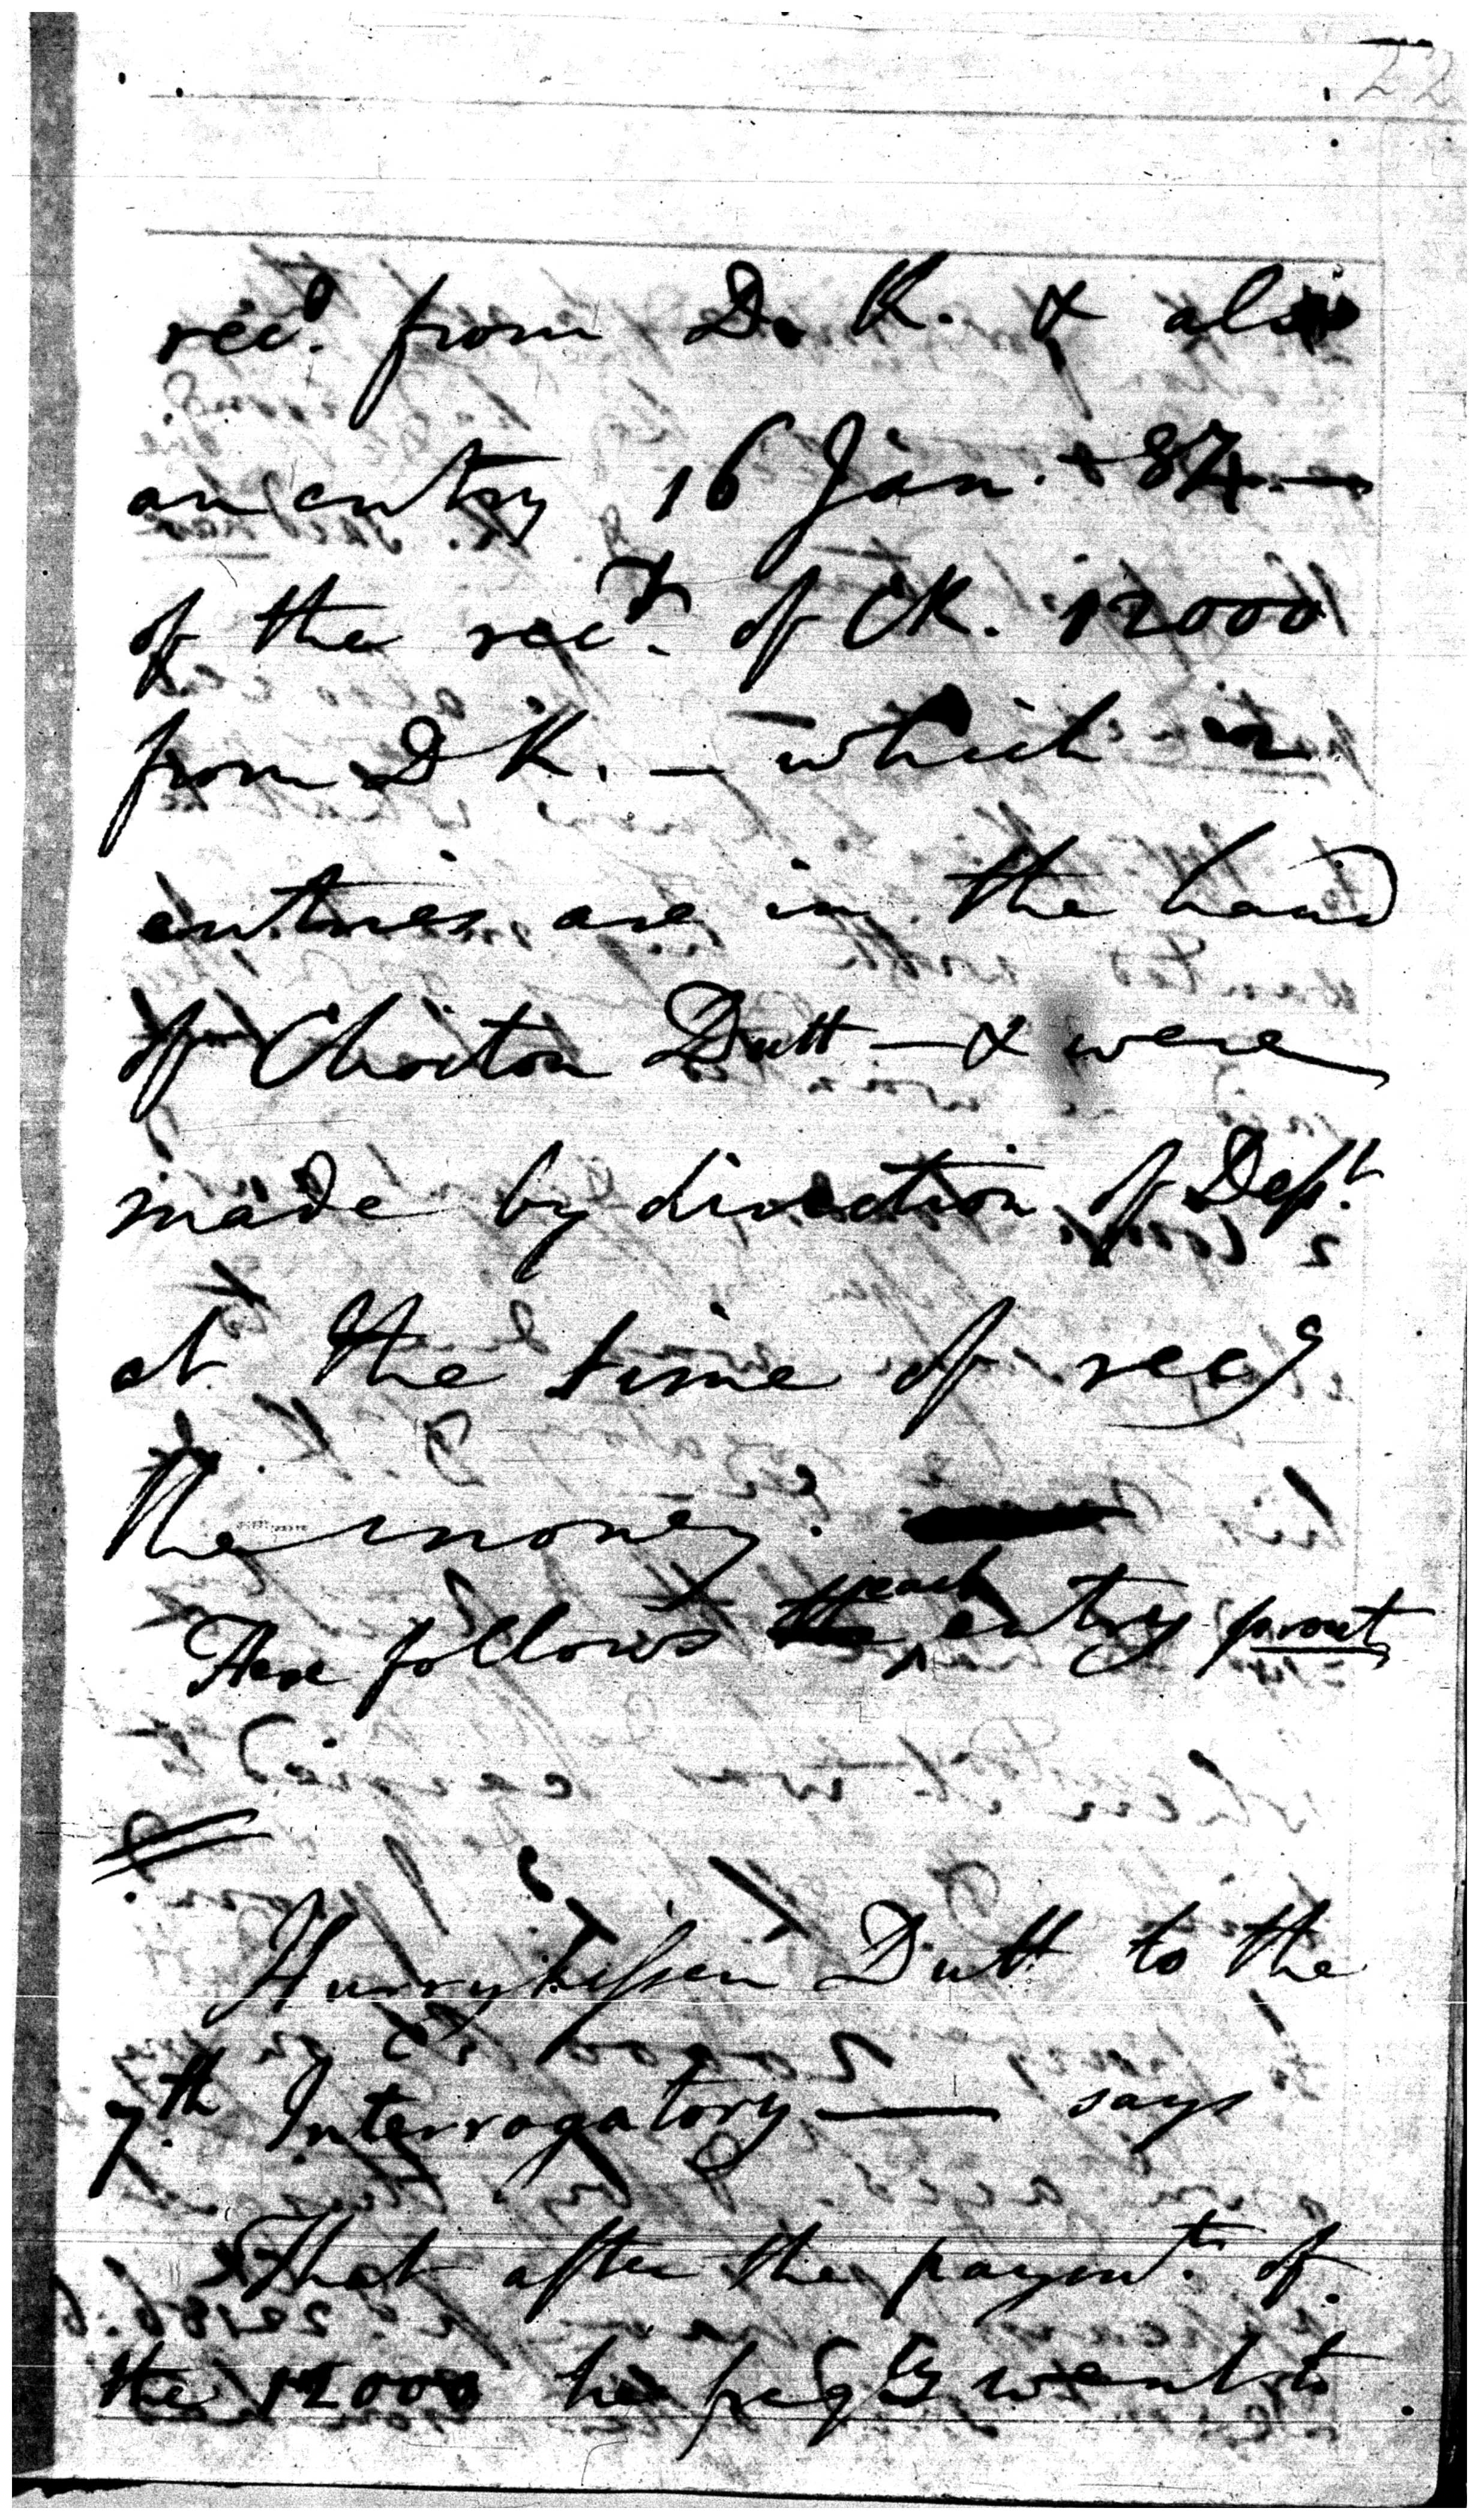 22
recd. from D. K. & also
an entry 16 Jan. & 84 —
of the rect. of CR. 12000
from D K. — which
entries are in the hand
of Choiton Dutt — & were
made by direction of Dept.
at the time of recg
the money.
Here follows each entry prout
Hurrykissen Dutt to the
7th. Interrogatory — says
That after the paymt. of
the 12000 he freqly went to